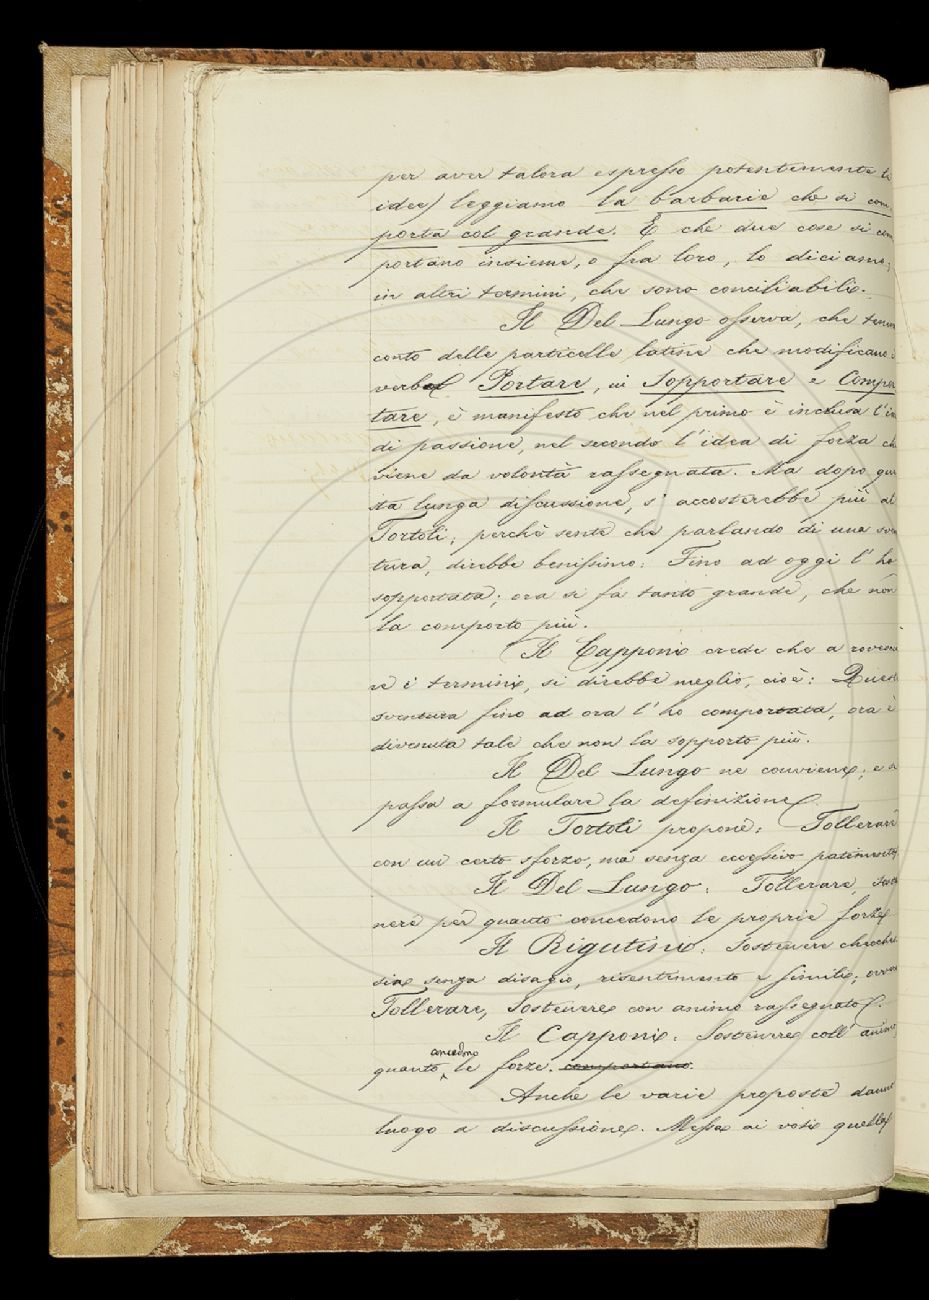 per aver talora espresso potentemente le
idee) leggiamo la barbarie che si com
porta col grande. E che due cose si com
portano insieme, o fra loro, lo diciamo,
in altri termini, che sono conciliabili.
Il Del Lungo osserva, che tenu
conto delle particelle latine che modificano i
verbi Portare, in Sopportare e Compor
tare, è manifesto che nel primo è inclusa l'i
di passione, nel secondo l'idea di forza che
viene da volontà rassegnata. Ma dopo que
sta lunga discussione, s'accosterebbe più al
Tortoli; perchè sente che parlando di una sven
tura, direbbe benissimo: Fino ad oggi l'ho
sopportata; ora si fa tanto grande, che non
la comporto più.
Il Capponi crede che a rovescia
re i termini, si direbbe meglio, cioè: Questa
sventura fino ad ora l'ho comportata, ora è
divenuta tale che non la sopporto più.
Il Del Lungo ne conviene; e si
passa a formulare la definizione.
Il Tortoli propone: Tollerare
con un certo sforzo, ma senza eccessivo patimento
Il Del Lungo: Tollerare, Soste
nere per quanto concedono le proprie forze
Il Rigutini: Sostenere checches
sia senza disagio, risentimento e simili; ovvero
Tollerare, Sostenere con animo rassegnato.
Il Capponi: Sostenere coll'animo,
concedono
quanto le forze. comportano.
Anche le varie proposte danno
luogo a discussione. Messa ai voti quella